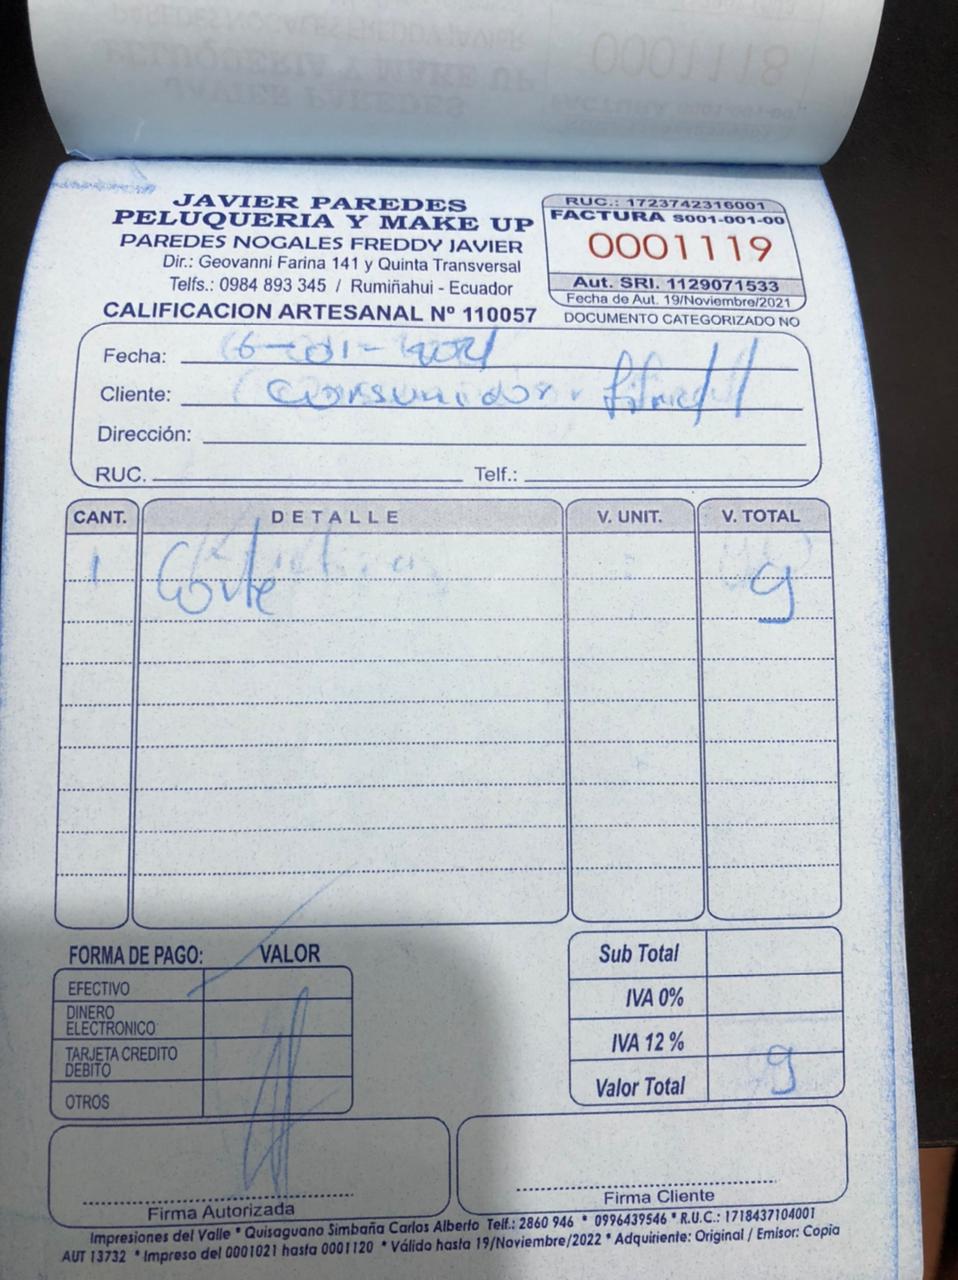 0001118
JAVIER PAREDES
PELUQUERIA Y MAKE UP
PAREDES NOGALES FREDDY JAVIER
Dir.: Geovanni Farina 141 y Quinta Transversal
Telfs.: 0984 893 345 / Rumiñahui - Ecuador
CALIFICACION ARTESANAL Nº 110057
RUC.: 1723742316001
FACTURA S001-001-00
0001119
Aut. SRI. 1129071533
Fecha de Aut. 19/Noviembre/2021
DOCUMENTO CATEGORIZADO NO
Fecha:
Cliente: Consumidor
Dirección:
RUC. Telf.:
CANT. DETALLE V. UNIT. V. TOTAL
1 Corte 9
FORMA DE PAGO: VALOR
EFECTIVO
DINERO ELECTRONICO
TARJETA CREDITO DEBITO
OTROS
Sub Total
IVA 0%
IVA 12 %
Valor Total 9
Firma Autorizada
Firma Cliente
Impresiones del Valle * Quisaguano Simbaña Carlos Alberto Telf.: 2860 946 * 0996439546 * R.U.C.: 1718437104001
AUT 13732 * Impreso del 0001021 hasta 0001120 * Válido hasta 19/Noviembre/2022 * Adquiriente: Original / Emisor: Copia